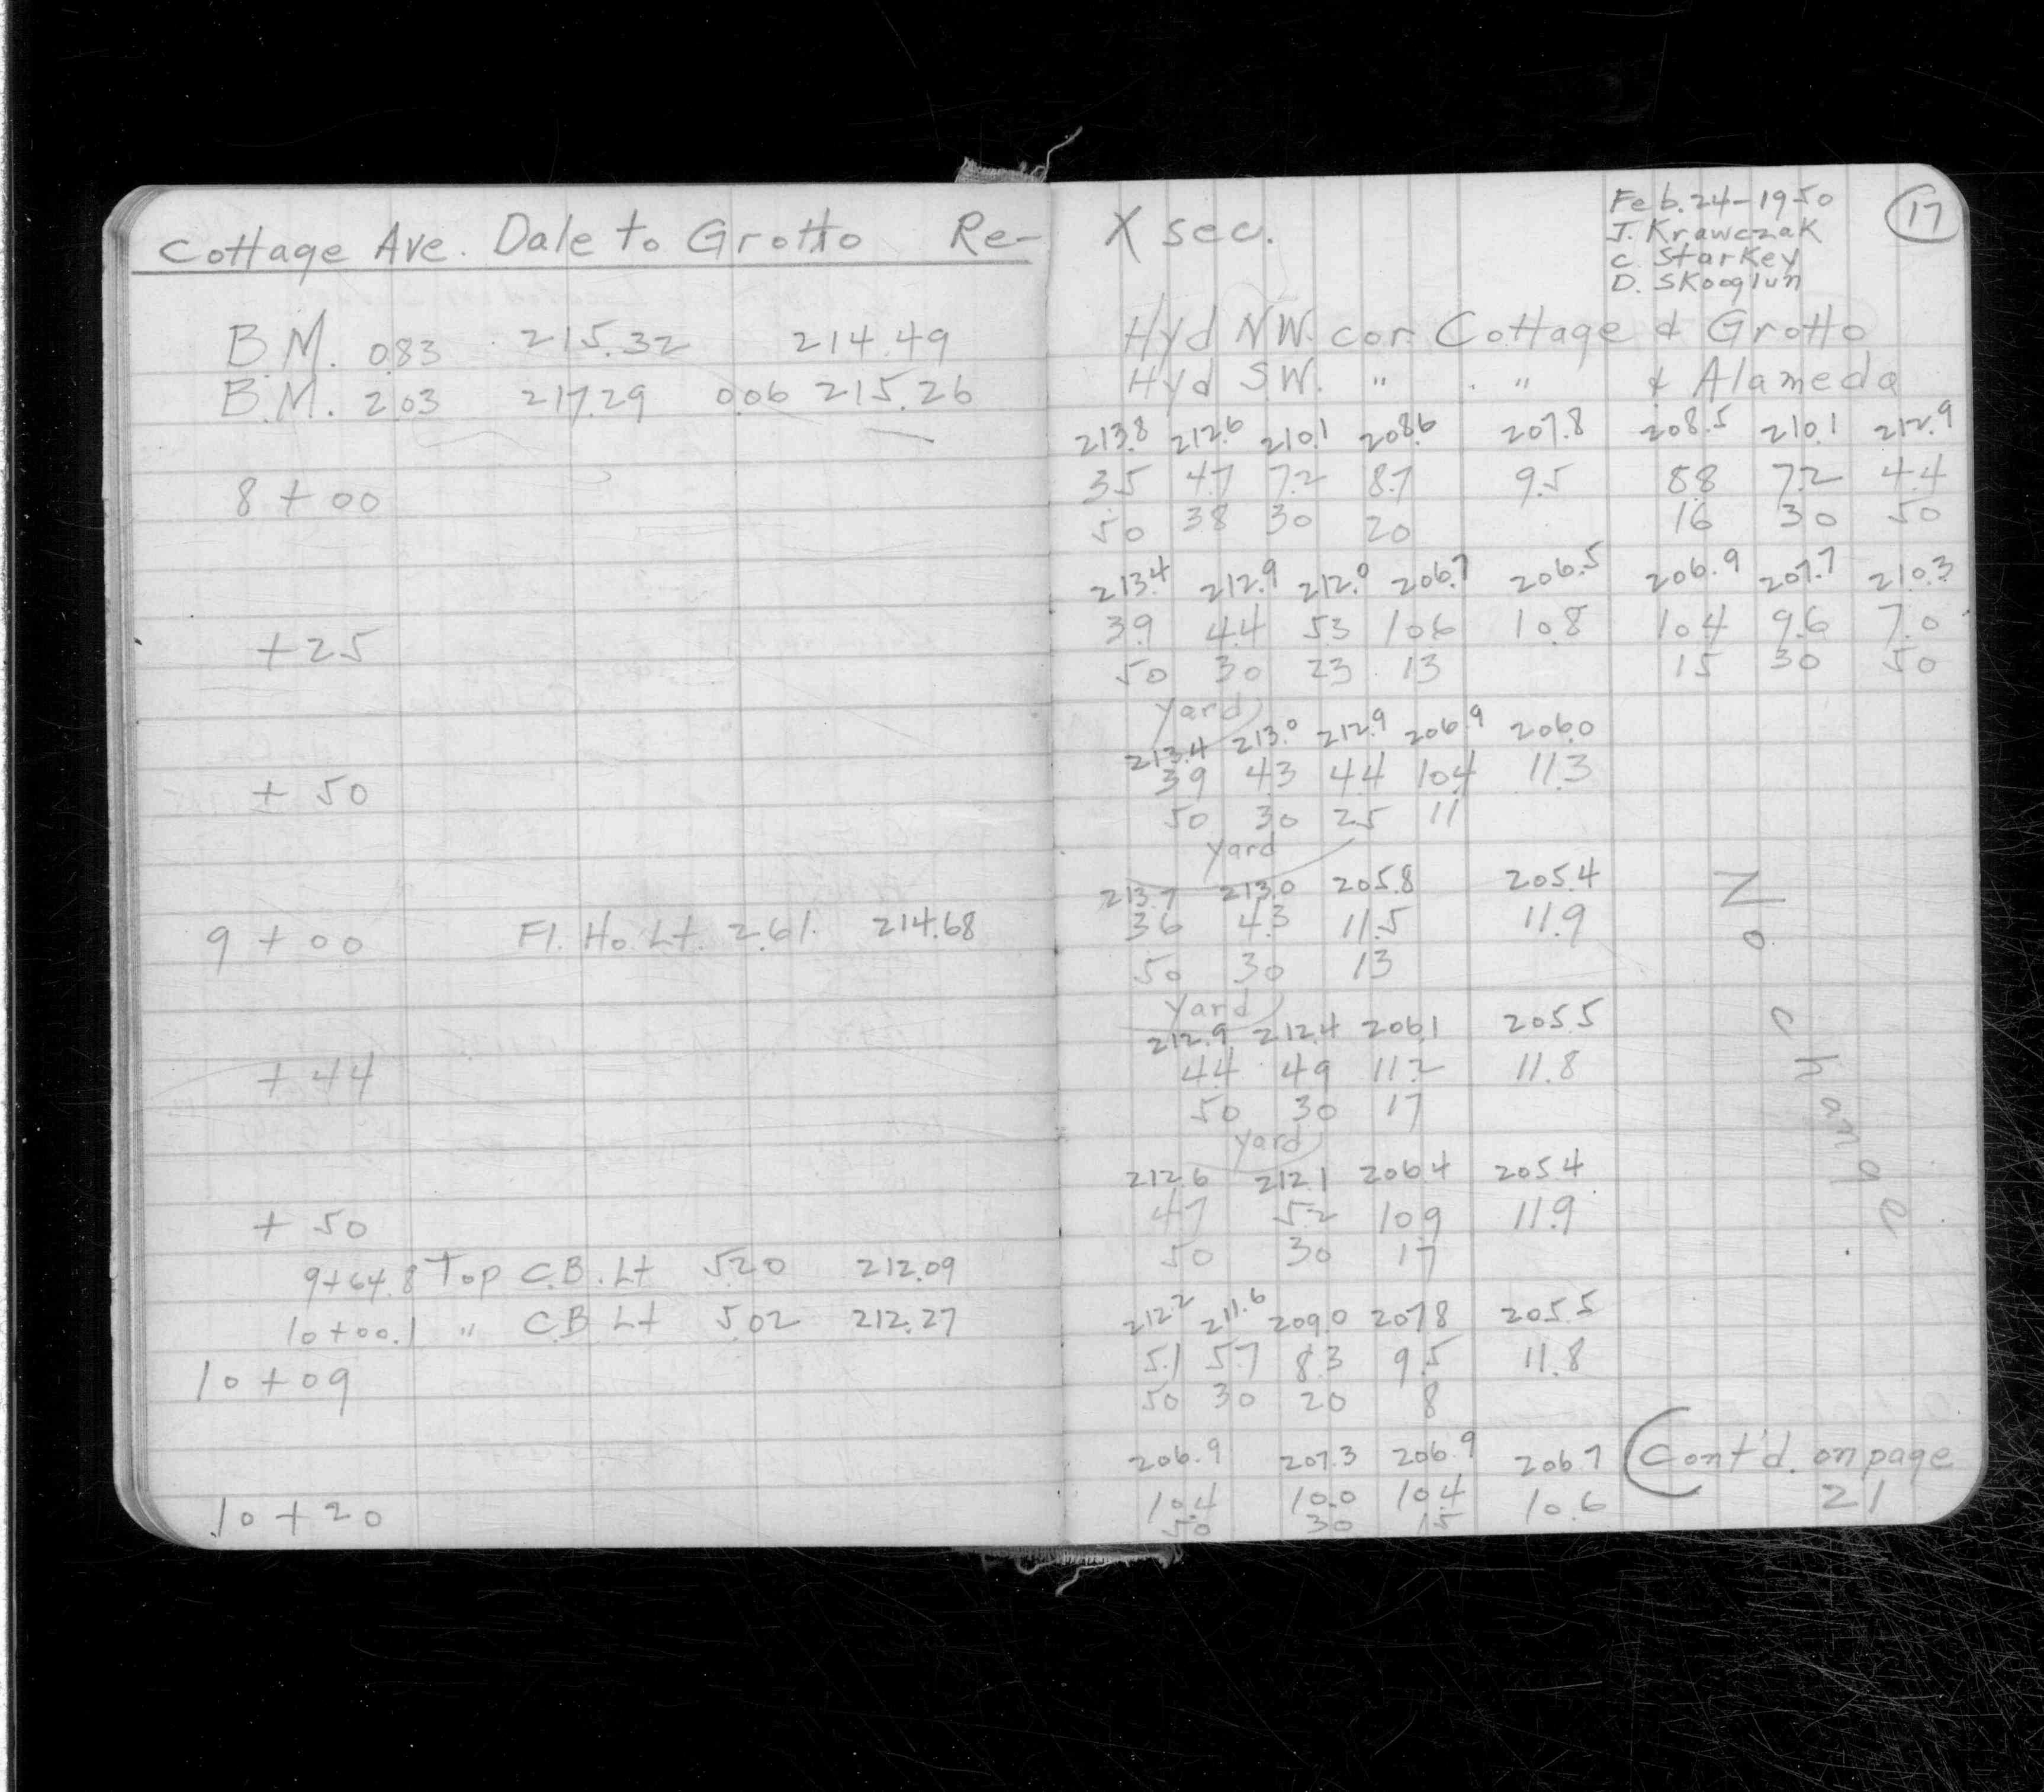 Cottage Ave. Dale to Grotto Re-
B.M. 0.83 215.32 214.49
B.M. 2.03 217.29 0.06 215.26
8 + 00
+ 25
+ 50
9 + 00 Fl. Ho. Lt. 2.61 214.68
+ 44
+ 50
9+64.8 Top C.B. Lt 5.20 212.09
10+00.1 " C.B. Lt 5.02 212.27
10 + 09
10 + 20
X sec.
Feb. 24-1950
J. Krawczak
C. Starkey
D. Skooglun
17
Hyd NW. cor. Cottage & Grotto
Hyd SW. " " & Alameda
213.8 212.6 210.1 208.6 207.8 208.5 210.1 212.9
3.5 4.7 7.2 8.7 9.5 8.8 7.2 4.4
50 38 30 20 16 30 50
213.4 212.9 212.0 206.7 206.5 206.9 207.7 210.3
3.9 4.4 5.3 10.6 10.8 10.4 9.6 7.0
50 30 23 13 15 30 50
Yard
213.4 213.0 212.9 206.9 206.0
3.9 4.3 4.4 10.4 11.3
50 30 25 11
Yard
213.7 213.0 205.8 205.4
3.6 4.3 11.5 11.9
50 30 13
Yard
212.9 212.4 206.1 205.5
4.4 4.9 11.2 11.8
50 30 17
Yard
212.6 212.1 206.4 205.4
4.7 5.2 10.9 11.9
50 30 17
212.2 211.6 209.0 207.8 205.5
5.1 5.7 8.3 9.5 11.8
50 30 20 8
206.9 207.3 206.9 206.7
10.4 10.0 10.4 10.6
50 30 15
No change
Cont'd. on page
21